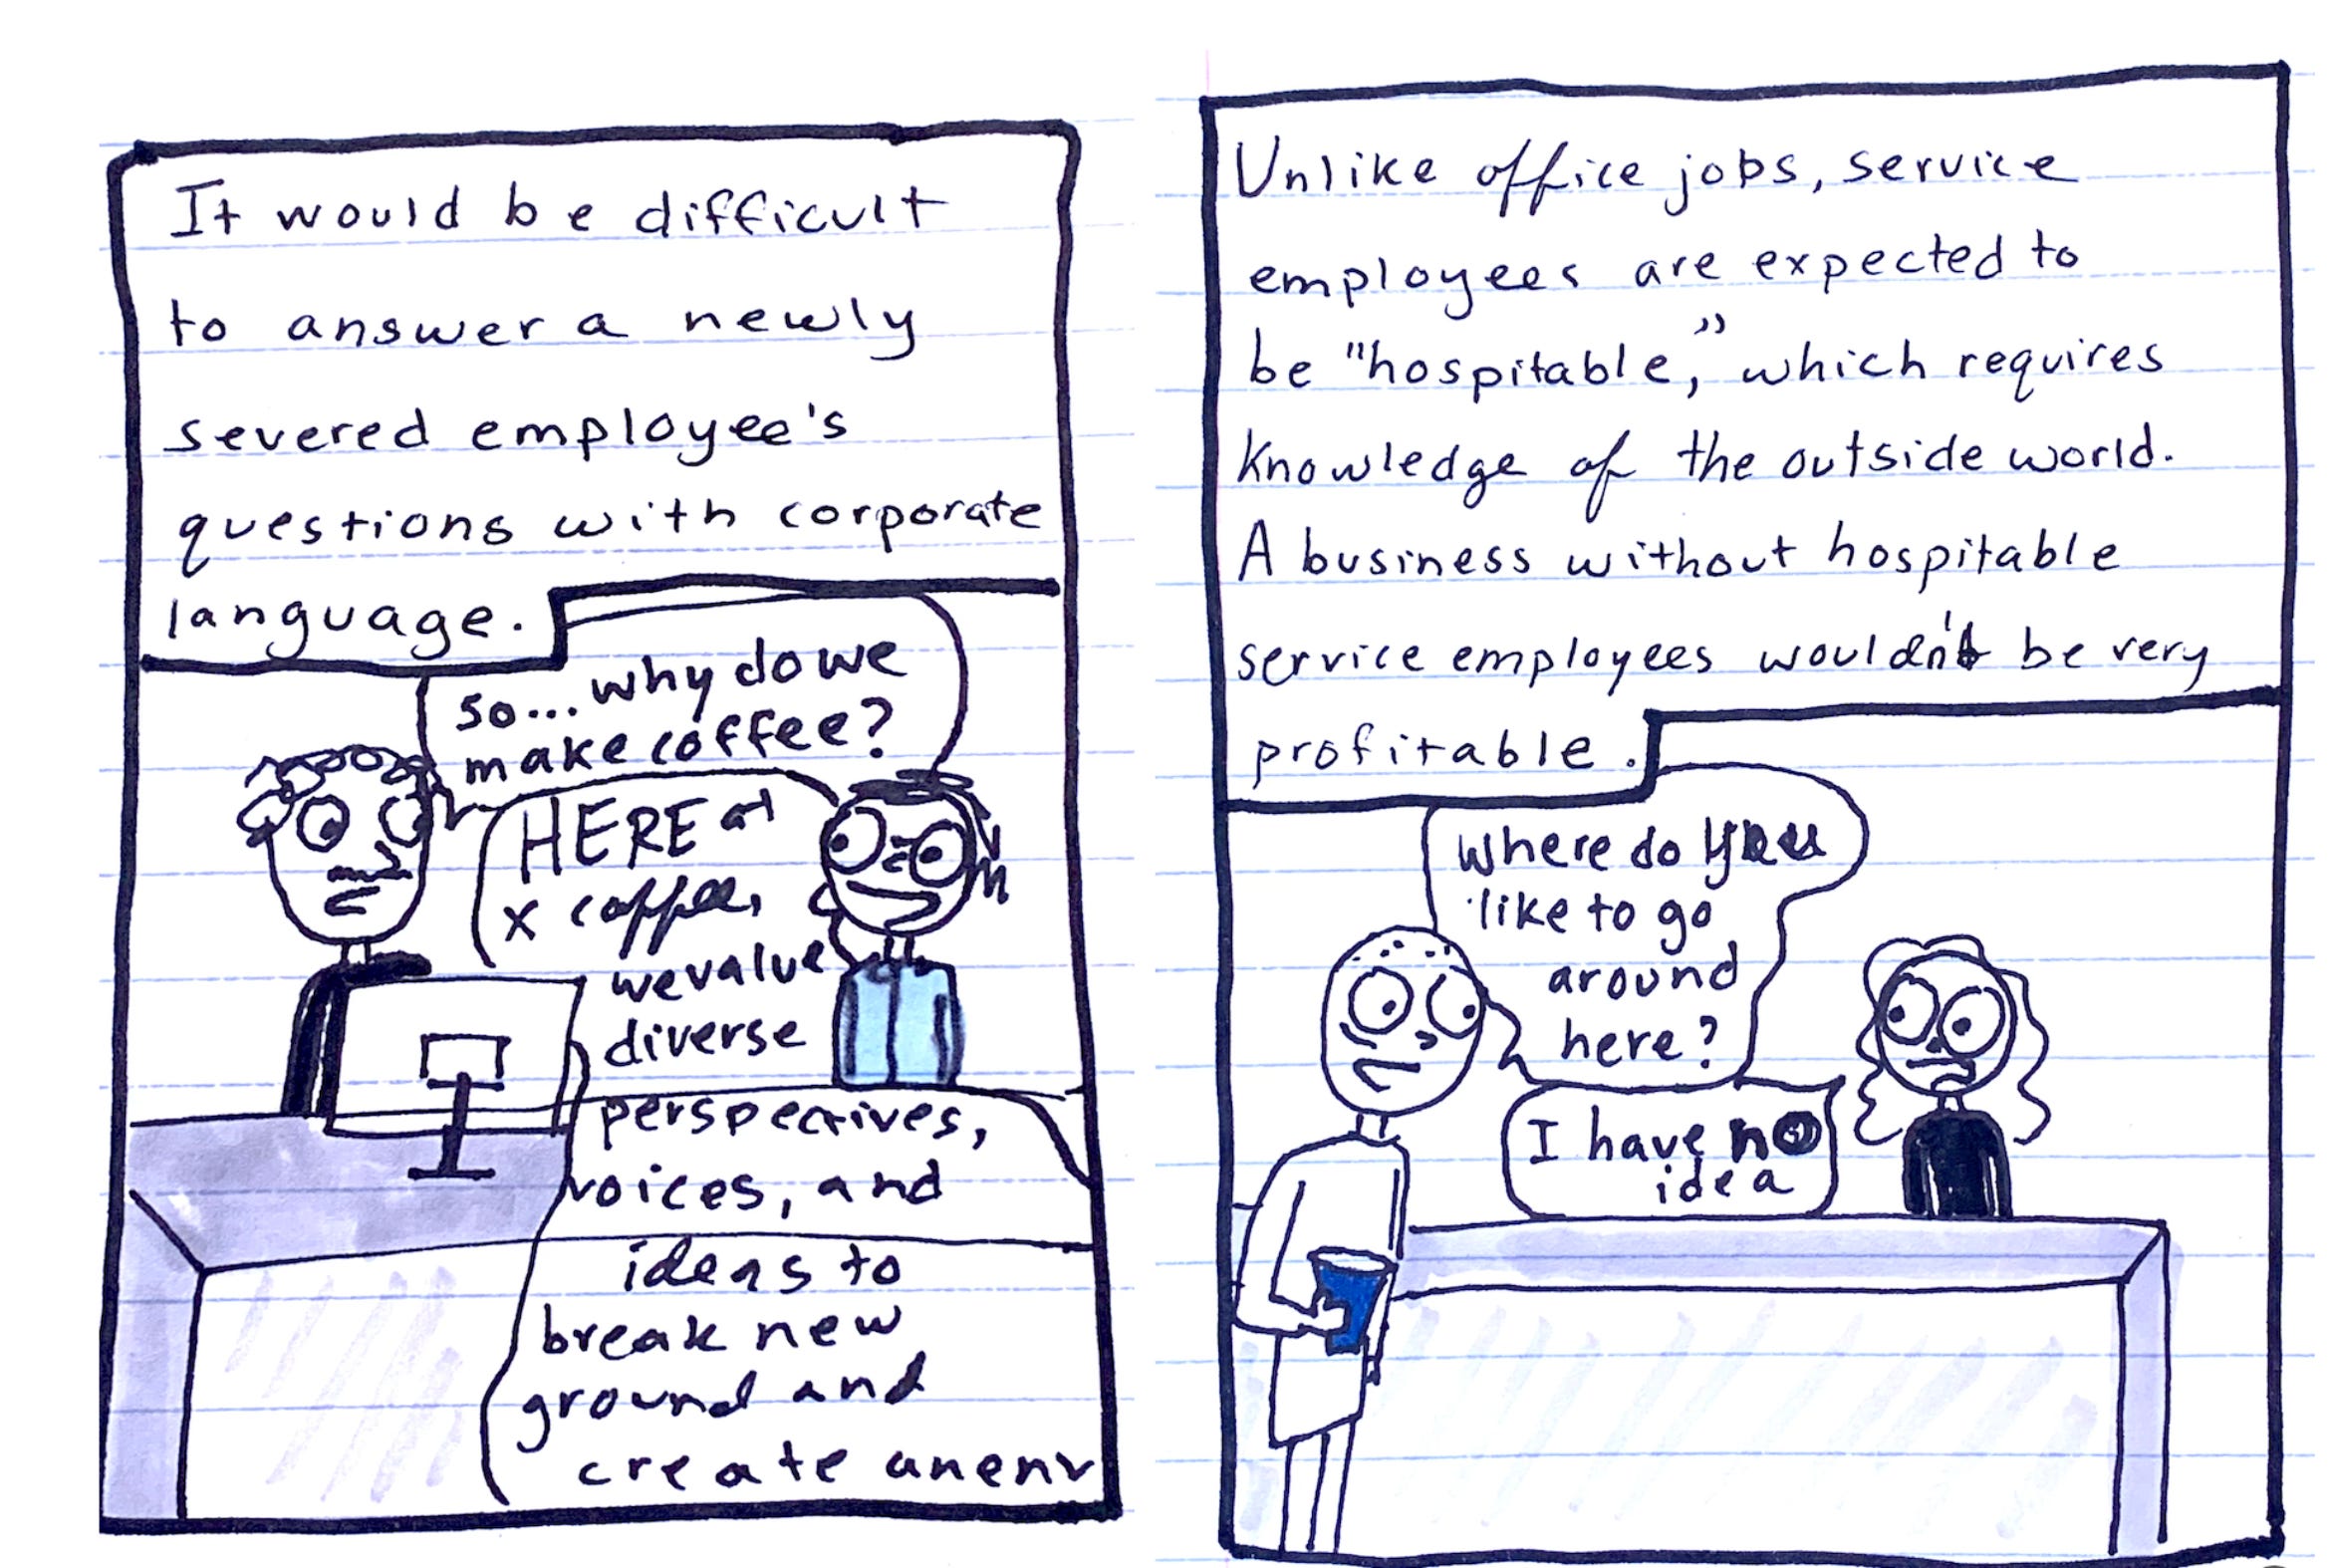 It would be difficult
to answer a newly
severed employee's
questions with corporate
language.
so... why do we
make coffee?
HERE at
x coffee,
we value
diverse
perspectives,
voices, and
ideas to
break new
ground and
create an env
Unlike office jobs, service
employees are expected to
be "hospitable," which requires
knowledge of the outside world.
A business without hospitable
service employees wouldn't be very
profitable.
where do you
like to go
around
here?
I have no
idea